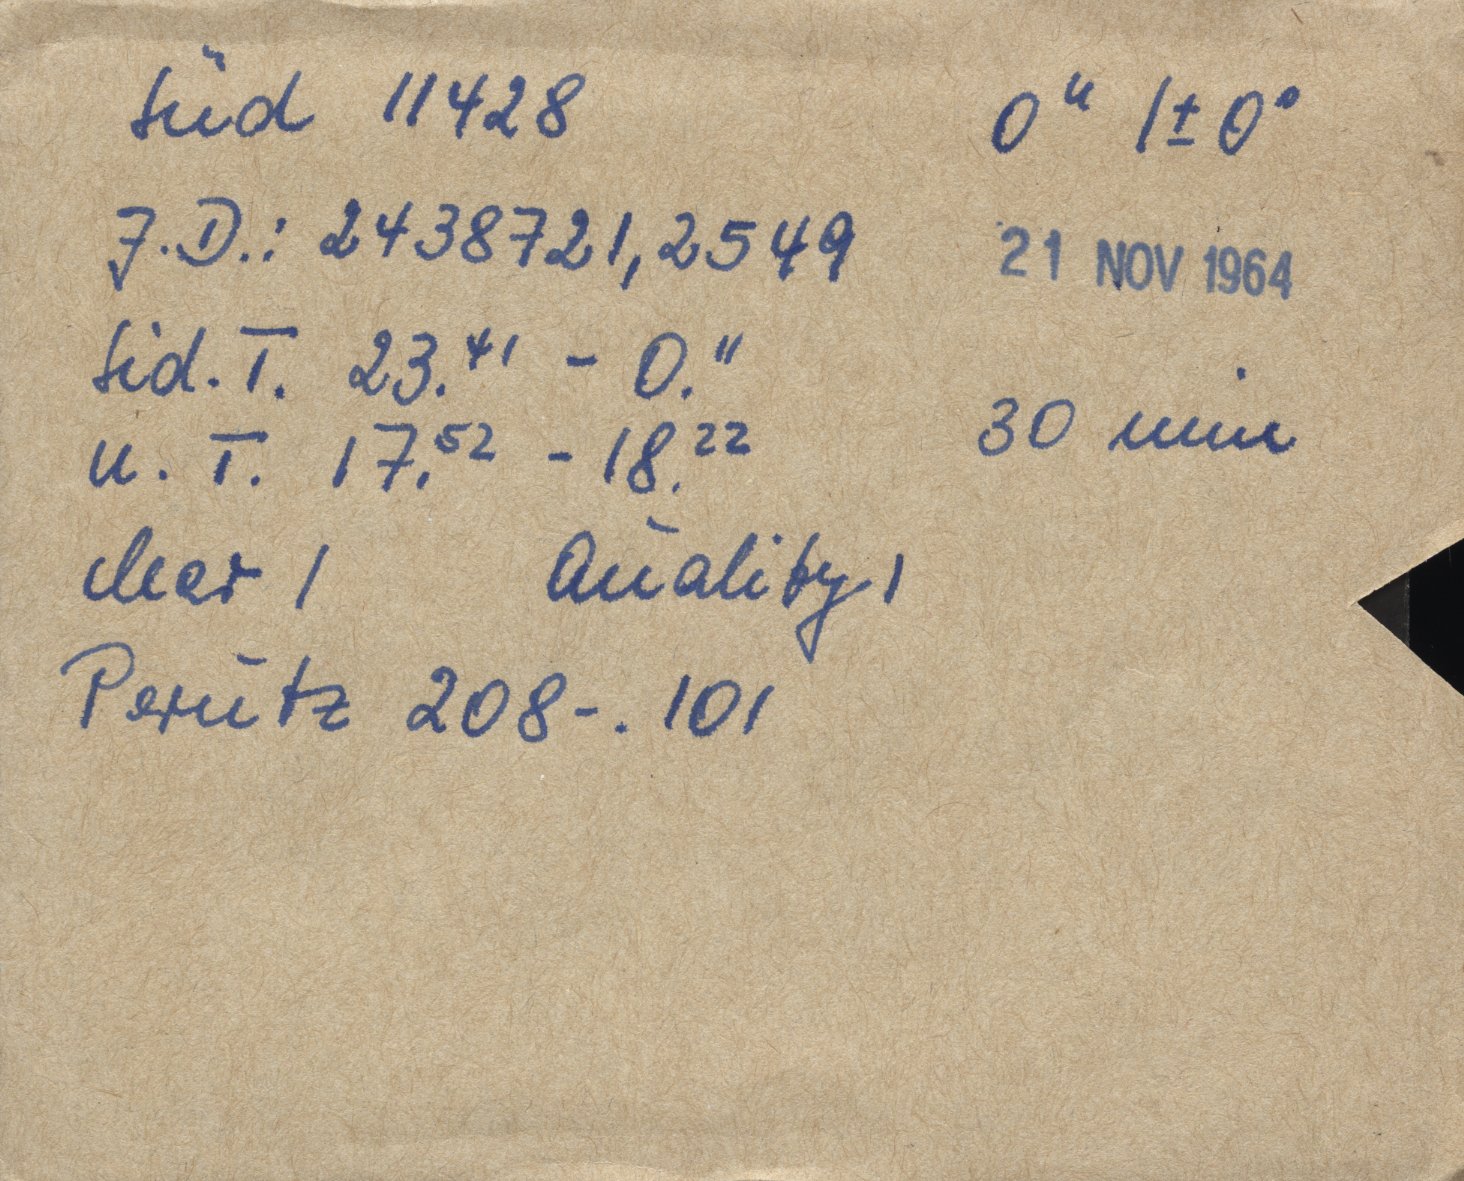 Süd 11428 0ʰ /±0°
J.D.: 2438721,2549 21 NOV 1964
Sid.T. 23.⁴¹ - 0.¹¹
U.T. 17.⁵² - 18.²² 30 min
clear 1 Quality 1
Perutz 208-.101